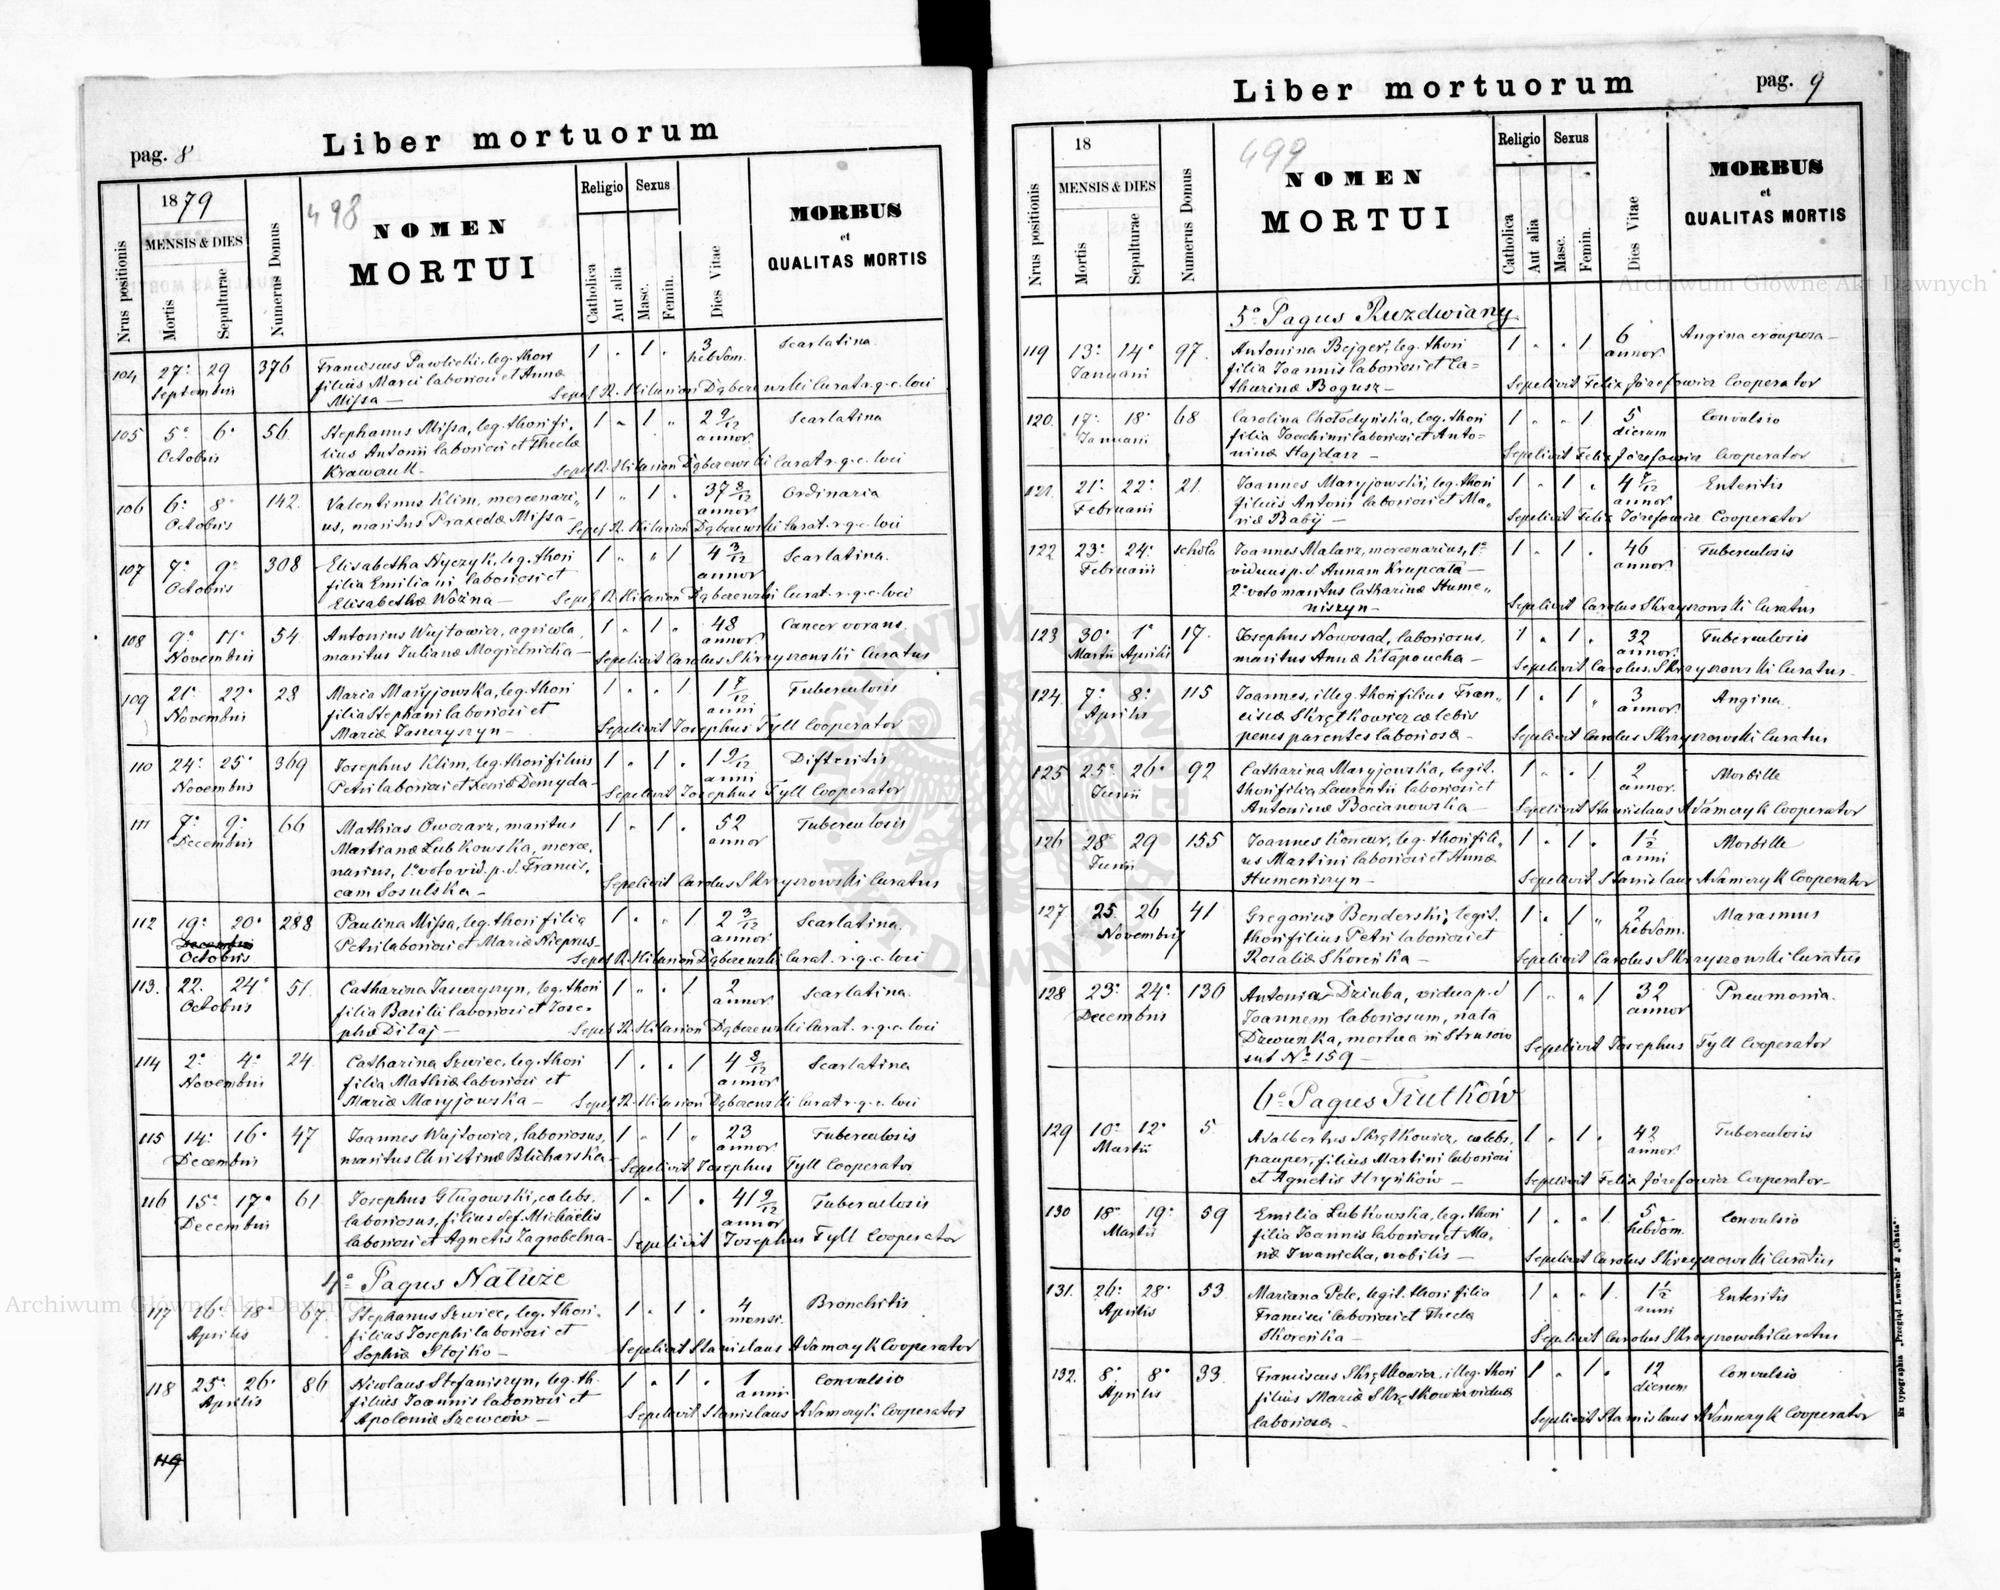 Liber mortuorum
pag. 8
1879
498
Nrus positionis
MENSIS & DIES
Mortis
Sepulturae
Numerus Domus
NOMEN
MORTUI
Religio
Sexus
Catholica
Aut alia
Masc.
Femin.
Dies Vitae
MORBUS
et
QUALITAS MORTIS
104 27. 29 376 Franciscus Pawlicki, leg. thori 1 " 1 " 3 Scarlatina
Septembris filius Marci laboriosi et Annæ hebdom.
Missa — Sepel. R. Hilarion Dąbczewski Curat. r. g. c. loci
105 5. 6. 56 Stephanus Missa, leg. thori fi- 1 " 1 " 2 9/12 Scarlatina
Octobris lius Antonii laboriosi et Theclæ annor.
Krawczuk — Sepel. R. Hilarion Dąbczewski Curat r. g. c. loci
106 6. 8. 142. Valentinus Klim, mercenari- 1 " 1 " 37 8/12 Ordinaria
Octobris us, maritus Praxedæ Missa — annor.
Sepel. R. Hilarion Dąbczewski Curat. r. g. c. loci
107 7. 9. 308 Elisabetha Nyczyk, leg. thori 1 " " 1 4 3/12 Scarlatina.
Octobris filia Emiliani laboriosi et annor
Elisabethæ Woźna — Sepel. R. Hilarion Dąbczewski Curat. r. g. c. loci
108 9. 11. 54. Antonius Wujtowicz, agricola, 1 " 1 " 48 Cancer vorans.
Novembris maritus Julianæ Mogielnicka — annor.
Sepelivit Carolus Skrzyszowski Curatus
109 21. 22. 28 Maria Maryjowska, leg. thori 1 " " 1 1 7/12 Tuberculosis
Novembris filia Stephani laboriosi et anni
Mariæ Jasuryszyn — Sepelivit Josephus Tyll Cooperator
110 24. 25. 369 Josephus Klim, leg. thori filius 1 " 1 " 1 9/12 Difteritis
Novembris Petri laboriosi et Xeniæ Demyda — anni
Sepelivit Josephus Tyll Cooperator
111 7. 9. 66 Mathias Owczarz, maritus 1 " 1 " 52 Tuberculosis
Decembris Martianæ Lubkowska, merce- annor
narius, 1o voto vid. p. d. Francis-
cam Sosulska — Sepelivit Carolus Skrzyszowski Curatus
112 19. 20. 288 Paulina Missa, leg. thori filia 1 " " 1 2 3/12 Scarlatina.
Decembris Petri laboriosi et Mariæ Nieprus — annor
Octobris Sepel. R. Hilarion Dąbczewski Curat. r. g. c. loci
113. 22. 24. 51. Catharina Jasuryszyn, leg. thori 1 " " 1 2 Scarlatina.
Octobris filia Basilii laboriosi et Jose- annor.
phæ Ditaj — Sepel. R. Hilarion Dąbczewski Curat. r. g. c. loci
114 2. 4. 24. Catharina Szwiec, leg. thori 1 " " 1 4 3/12 Scarlatina
Novembris filia Mathiæ laboriosi et annor.
Mariæ Maryjowska — Sepel. R. Hilarion Dąbczewski Curat r. g. c. loci
115 14. 16. 47 Joannes Wujtowicz, laboriosus, 1 " 1 " 23 Tuberculosis
Decembris maritus Christinæ Blicharska — annor.
Sepelivit Josephus Tyll Cooperator
116 15. 17. 61. Josephus Gługowski, cœlebs, 1 " 1 " 41 9/12 Tuberculosis
Decembris laboriosus, filius def. Michaelis annor
laboriosi et Agnetis Zagrobelna — Sepelivit Josephus Tyll Cooperator
4o Pagus Nałuże
117 16. 18. 67. Stephanus Szwiec, leg. thori 1 " 1 " 4 Bronchitis
Aprilis filius Josephi laboriosi et mensi.
Sophiæ Stojko — Sepelivit Stanislaus Adamczyk Cooperator
118 25. 26. 86 Nicolaus Stefaniszyn, leg. th. 1 " 1 " 1 Convulsio
Aprilis filius Joannis laboriosi et anni
Apoloniæ Szewców — Sepelivit Stanislaus Adamczyk Cooperator
119
Liber mortuorum
pag. 9
18
499
Nrus positionis
MENSIS & DIES
Mortis
Sepulturae
Numerus Domus
NOMEN
MORTUI
Religio
Sexus
Catholica
Aut alia
Masc.
Femin.
Dies Vitae
MORBUS
et
QUALITAS MORTIS
5o Pagus Ruzdwiany
119 13. 14. 97. Antonina Bejger, leg. thori 1 " " 1 6 Angina crouposa
Januarii filia Joannis laboriosi et Ca- annor.
tharinæ Bogusz — Sepelivit Felix Józefowicz Cooperator
120. 17. 18. 68 Carolina Chołodyńska, leg. thori 1 " " 1 5 Convulsio
Januarii filia Joachimi laboriosi et Anto- dierum
ninæ Hajdasz — Sepelivit Felix Józefowicz Cooperator
121. 21. 22. 21. Joannes Maryjowski, leg. thori 1 " 1 " 4 7/12 Enteritis
Februarii filius Antoni laboriosi et Ma- annor.
riæ Babij — Sepelivit Felix Józefowicz Cooperator
122 23. 24. schola Joannes Malarz, mercenarius, 1o 1 " 1 " 46 Tuberculosis
Februarii viduus p. d. Annam Krupcała — annor.
2o voto maritus Catharinæ Hume-
niszyn — Sepelivit Carolus Skrzyszowski Curatus
123 30. 1. 17. Josephus Nowosad, laboriosus, 1 " 1 " 32 Tuberculosis
Martii Aprilis maritus Annæ Kłapoucha — annor.
Sepelivit Carolus Skrzyszowski Curatus —
124 7. 8. 115 Joannes, illeg. thori filius Fran- 1 " 1 " 3 Angina.
Aprilis ciscæ Skrętkowicz cœlebis annor.
penes parentes laboriosæ — Sepelivit Carolus Skrzyszowski Curatus
125 25. 26. 92 Catharina Maryjowska, legit. 1 " " 1 2 Morbille
Junii thori filia Laurentii laboriosi et annor.
Antoninæ Bocianowska — Sepelivit Stanislaus Adamczyk Cooperator
126 28. 29 155 Joannes Koncur, leg. thori fili- 1 " 1 " 1 1/2 Morbille
Junii us Martini laboriosi et Annæ anni
Humeniszyn — Sepelivit Stanislaus Adamczyk Cooperator
127 25 26 41 Gregorius Benderski, legit. 1 " 1 " 2 Marasmus
Novembris thori filius Petri laboriosi et hebdom.
Rosaliæ Skoreńka — Sepelivit Carolus Skrzyszowski Curatus
128 23. 24. 130 Antonia Dziuba, vidua p. d 1 " " 1 32 Pneumonia.
Decembris Joannem laboriosum, nata annor
Dzwunka, mortua in Strusów
sub No 159 — Sepelivit Josephus Tyll Cooperator
6o Pagus Tiutków
129 10. 12. 5. Adalbertus Skrętkowicz, cœlebs, 1 " 1 " 42 Tuberculosis
Martii pauper, filius Martini laboriosi annor.
et Agnetis Stryńków — Sepelivit Felix Józefowicz Cooperator —
130 18. 19. 59 Emilia Lubkowska, leg. thori 1 " " 1 5 Convulsio
Martii filia Joannis laboriosi et Ma- hebdom.
riæ Iwanicka, nobilis — Sepelivit Carolus Skrzyszowski Curatus
131. 26. 28. 53 Mariana Pelc, legit. thori filia 1 " " 1 1 1/2 Enteritis
Aprilis Francisci laboriosi et Theclæ anni
Skoreńka — Sepelivit Carolus Skrzyszowski Curatus
132. 8. 8. 33. Franciscus Skrętkowicz, illeg. thori 1 " 1 " 12 Convulsio
Aprilis filius Mariæ Skrętkowicz viduæ dierum
laboriosæ — Sepelivit Stanislaus Adamczyk Cooperator
Ex typographia „Przegląd Lwowski" & „Chata".
Archiwum Główne Akt Dawnych
Archiwum Główne Akt Dawnych
ARCHIWUM GŁÓWNE AKT DAWNYCH